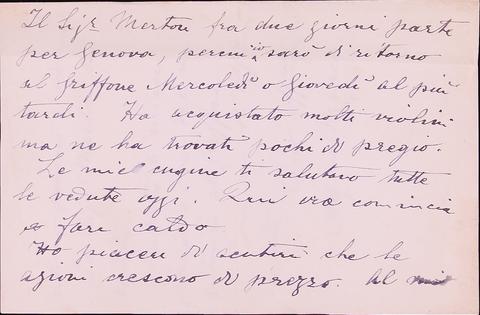 Il Sigr Merton fra due giorni parte
per Genova, perciò sarò di ritorno
al Griffone Mercoledì o Giovedì al più
tardi. Ha acquistato molti violini
ma ne ha trovati pochi di pregio.
Le mie cugine ti salutano tutte
le vedute oggi. Qui ora comincia
a fare caldo
Ho piacere di sentire che le
azioni crescono di prezzo. Al